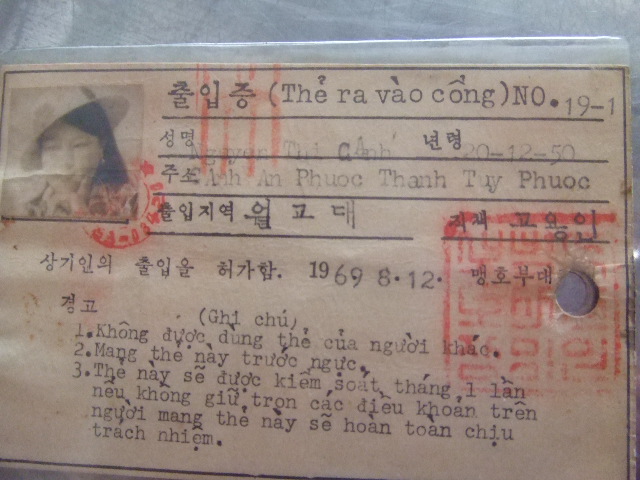 출입증 (Thẻ ra vào cổng) NO. 19-1
성명 Nguyen Thi Cảnh 년령 20-12-50
주소 Cảnh An Phuoc Thanh Tuy Phuoc
출입지역 월고대 직책 고용인
상기인의 출입을 허가함. 1969 8.12. 맹호부대
경고 (Ghi chú)
1.Không được dùng thẻ của người khác.
2.Mang thẻ này trước ngực.
3.Thẻ này sẽ được kiểm soát tháng 1 lần
nếu không giữ trọn các điều khoản trên
người mang thẻ này sẽ hoàn toàn chịu
trách nhiệm.